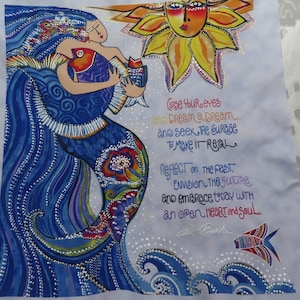 Close Your eyes
and Dream a Dream
and seek the courage
to make it real.
Reflect on the past.
Envision the future
and embrace today with
an open heart and soul.